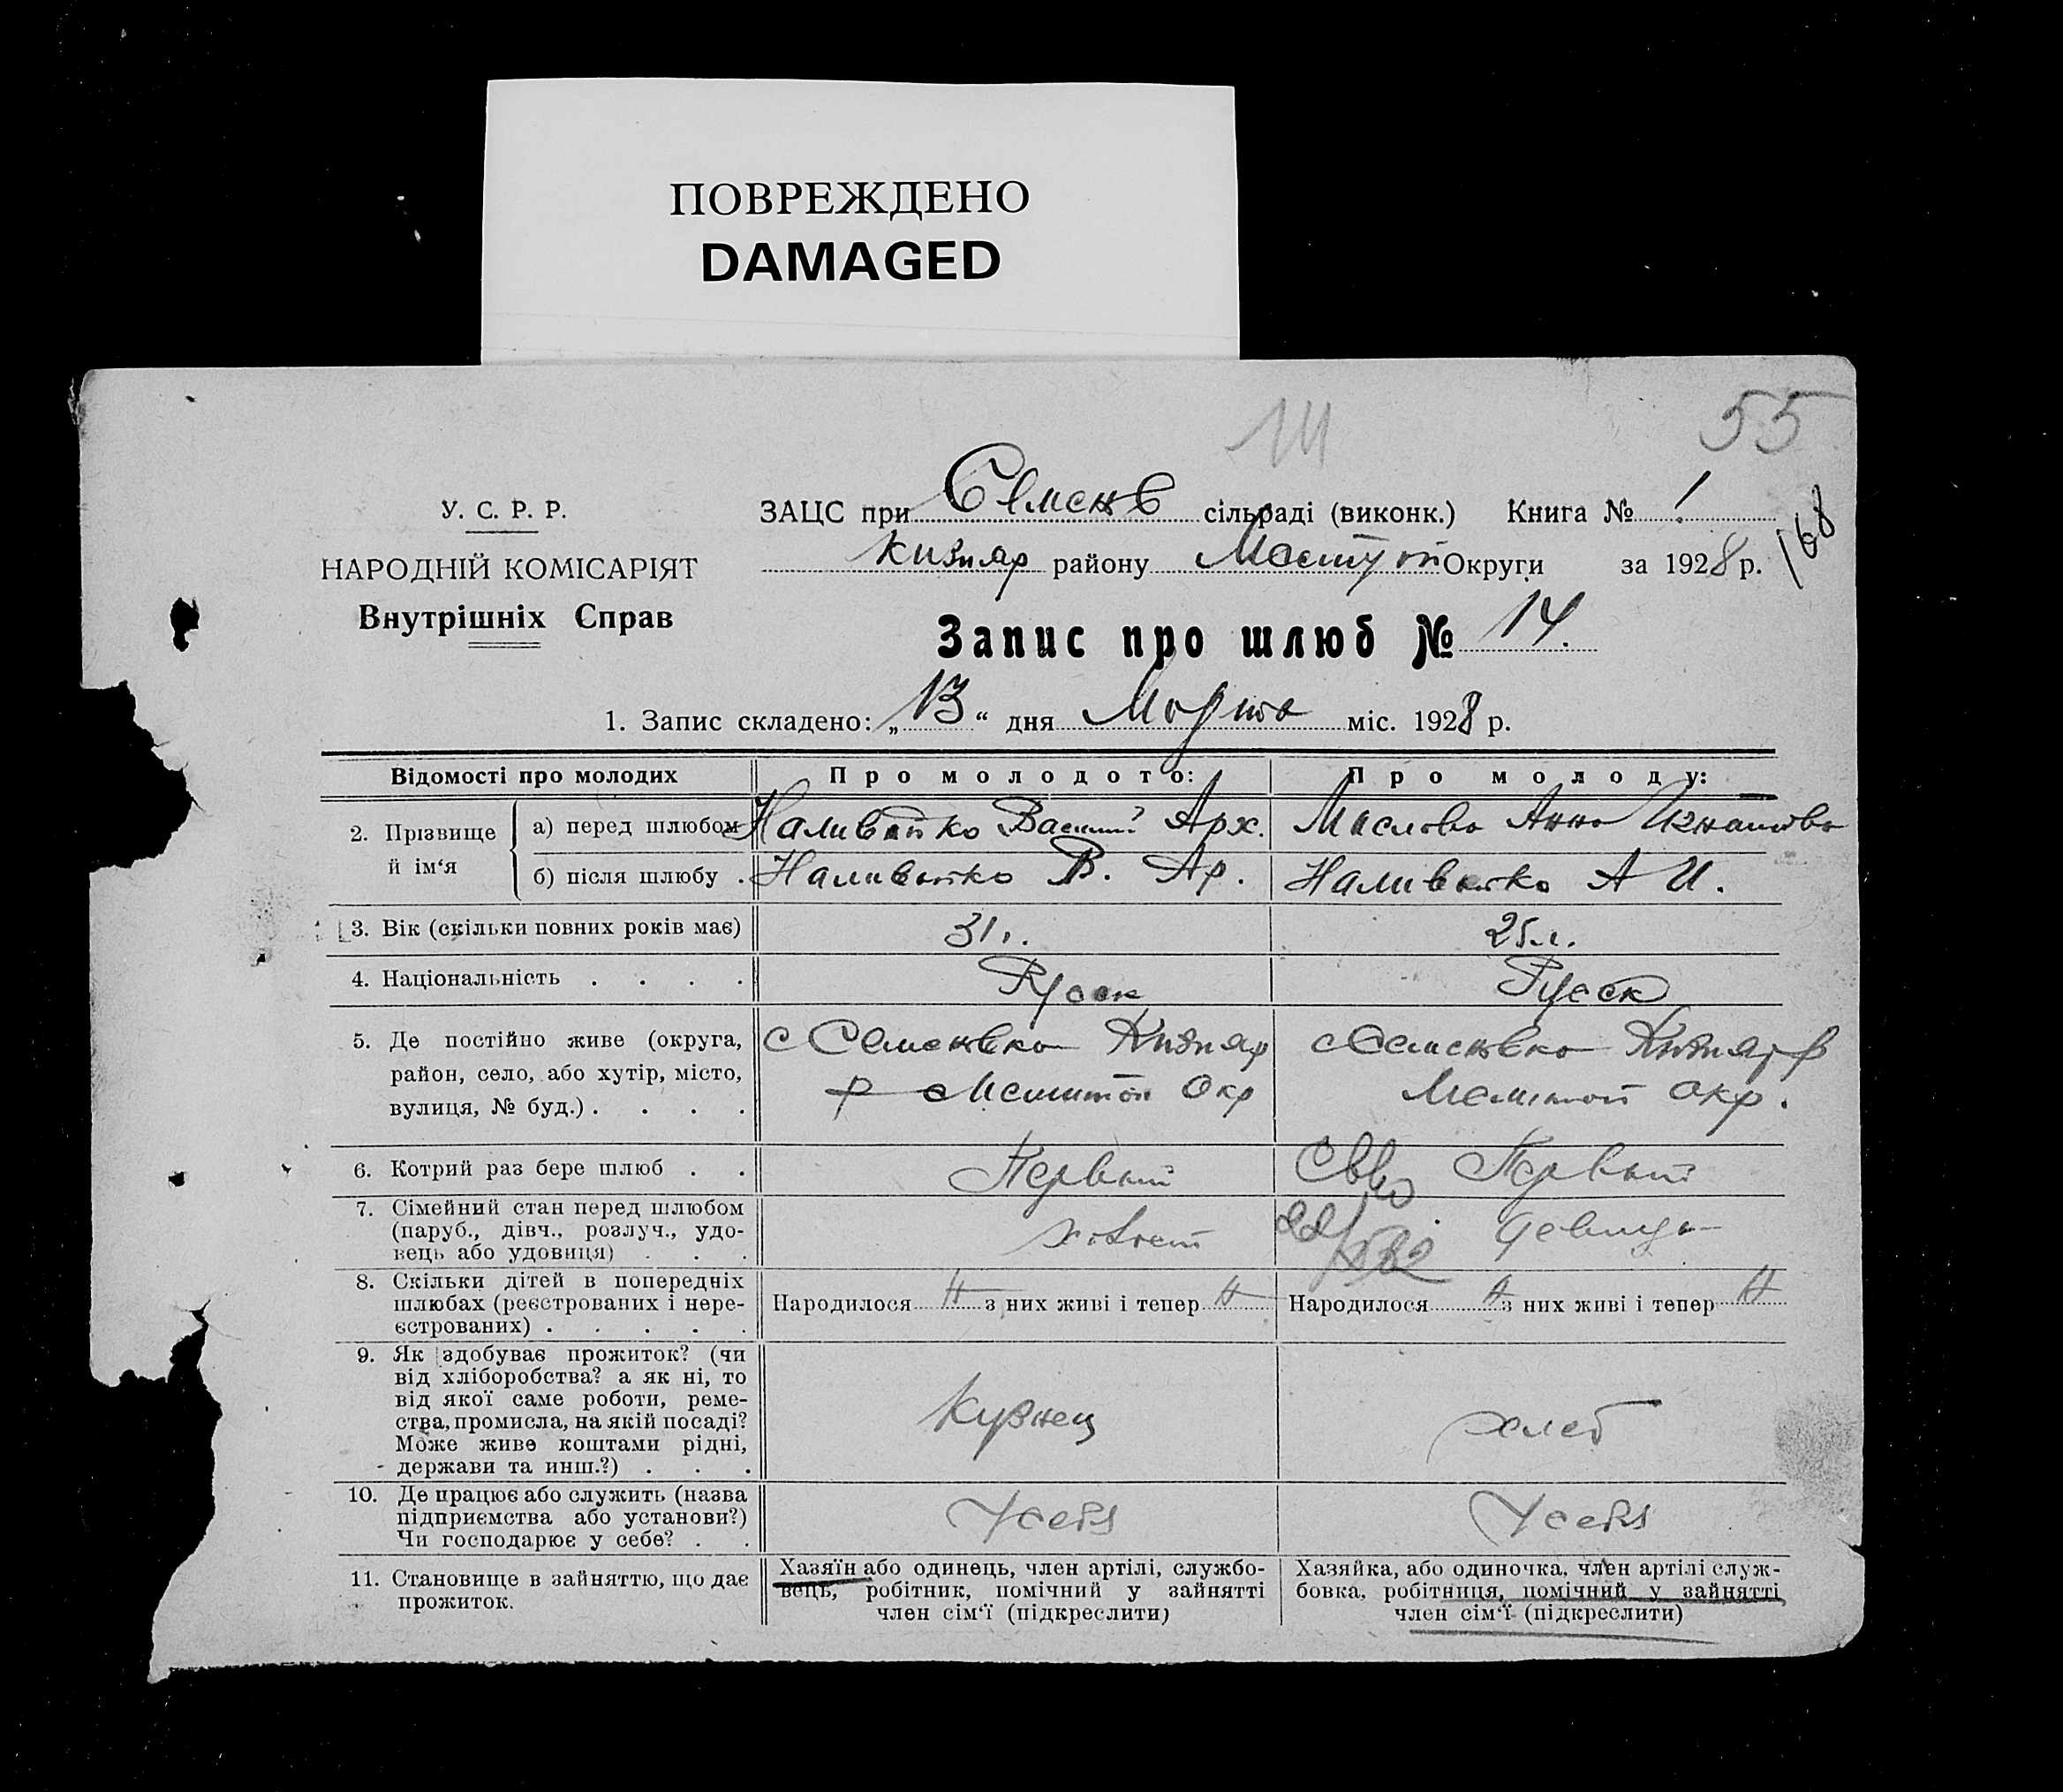 ПОВРЕЖДЕНО
DAMAGED
55
У. С. Р. Р.
НАРОДНІЙ КОМІСАРІЯТ
Внутрішніх Справ
ЗАЦС при Семенв сільраді (виконк.) Книга № 1
168
Кизияр району Округи за 1928 р.
Запис про шлюб № 14.
1. Запис складено: „13“ дня Марта міс. 1928 р.
Відомості про молодих Про молодого: Про молоду:
2. Прізвище й ім‘я
а) перед шлюбом Наливайко Василий Арх. Маслова Анна Игнатова
б) після шлюбу . Наливайко В. Ар. Наливайко А И.
3. Вік (скільки повних років має) 31 25 л.
4. Національність . . . . Русск Русск
5. Де постійно живе (округа, район, село, або хутір, місто, вулиця, № буд.) . . . .
с Семеновка Кизияр
р Мелитоп Окр
с Семеновка Кизияр р
Мелитоп Окр.
6. Котрий раз бере шлюб . . Первый Первый
7. Сімейний стан перед шлюбом
(паруб., дівч., розлуч., удо-
вець або удовиця) . . . холост девица
8. Скільки дітей в попередніх
шлюбах (реєстрованих і нере-
єстрованих) . . . . .
Народилося Н з них живі і тепер Н
Народилося Н з них живі і тепер Н
9. Як здобуває прожиток? (чи
від хліборобства? а як ні, то
від якої саме роботи, реме-
ства, промисла, на якій посаді?
Може живе коштами рідні,
держави та инш.?) . . .
Кузнец хлеб
10. Де працює або служить (назва
підприємства або установи?)
Чи господарює у себе? . .
У себя У себя
11. Становище в зайняттю, що дає
прожиток.
Хазяїн або одинець, член артілі, службо-
вець, робітник, помічний у зайнятті
член сім‘ї (підкреслити)
Хазяйка, або одиночка, член артілі служ-
бовка, робітниця, помічний у зайнятті
член сім‘ї (підкреслити)